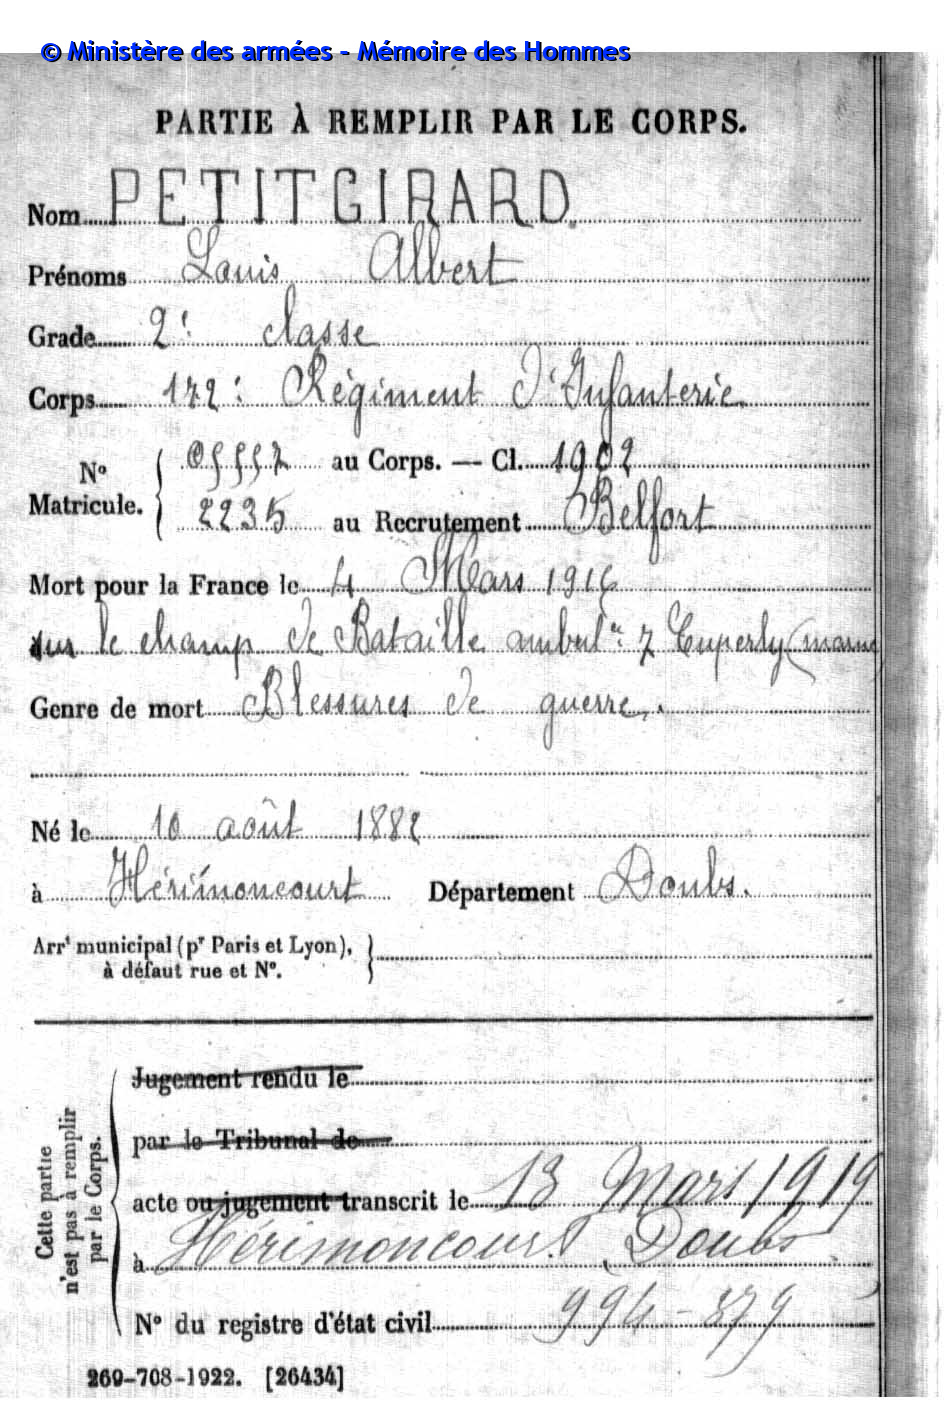 © Ministère des armées - Mémoire des Hommes
PARTIE À REMPLIR PAR LE CORPS.
Nom PETITGIRARD
Prénoms Louis Albert
Grade 2e classe
Corps 172e Régiment d'Infanterie
N° Matricule. 05557 au Corps. — Cl. 1902
2235 au Recrutement Belfort
Mort pour la France le 4 Mars 1916
sur le champ de Bataille ambulce 7 Cuperly (marne)
Genre de mort Blessures de guerre.
Né le 10 août 1882
à Hérimoncourt Département Doubs.
Arrt municipal (pr Paris et Lyon),
à défaut rue et N°.
Cette partie
n'est pas à remplir
par le Corps.
Jugement rendu le
par le Tribunal de
acte ou jugement transcrit le 13 Mars 1919
à Hérimoncourt (Doubs
N° du registre d'état civil 994-879
269-708-1922. [26434]